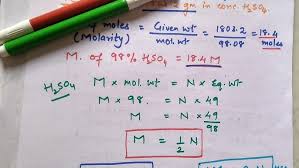 2 gm in conc. H₂SO₄.
moles = Given wt / mol. wt = 1803.2 / 98.08 = 18.4 moles
(Molarity)
M. of 98% H₂SO₄ = 18.4 M
H₂SO₄ M × mol. wt = N × Eq. wt
M × 98 = N × 49
M = N × 49 / 98
M = 1/2 N